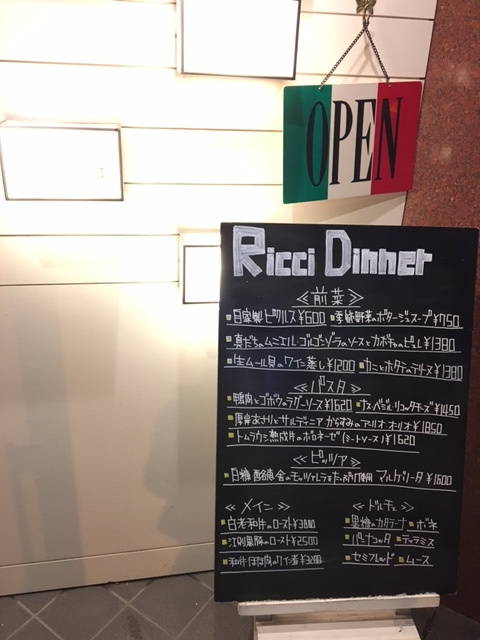 OPEN
Ricci Dinner
≪前菜≫
自家製ピクルス¥600 季節野菜のポタージュスープ¥750
真だちのムニエル・ゴルゴンゾーラのソースとカボチャのピュレ¥1380
生ムール貝のワイン蒸し¥1200 カニとホタテのテリーヌ¥1380
≪パスタ≫
鴨肉とゴボウのラグーソース¥1620 ナス・バジル・リコッタチーズ¥1450
厚岸あさりとサルディニアからすみのアーリオ・オーリオ¥1850
トムラウシ熟成肉のボロネーゼ(ミートソース)¥1620
≪ピッツァ≫
白糠酪恵舎のモッツァレラをたっぷり使用 マルゲリータ ¥1600
≪メイン≫
白老和牛のロースト¥3800
江別黒豚のロースト¥2500
和牛ほほ肉のワイン煮¥3200
≪ドルチェ≫
黒糖のカタラーナ ボネ
パンナコッタ ティラミス
セミフレッド ムース